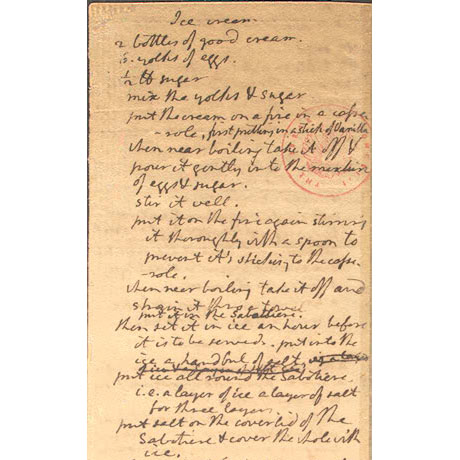 Ice cream.
2 bottles of good cream.
6. yolks of eggs.
½ ℔ sugar
mix the yolks & sugar
put the cream on a fire in a casse
-role, first putting in a stick of Vanilla.
when near boiling take it off &
pour it gently into the mixture
of eggs & sugar.
stir it well.
put it on the fire again stirring
it thoroughly with a spoon to
prevent it's sticking to the casse
-role.
when near boiling take it off and
strain it thro' a towel.
put it in the Sabottiere.
then set it in ice an hour before
it is to be served. put into the
ice a handful of salt.
put ice all round the Sabottiere.
i.e. a layer of ice a layer of salt
for three layers.
put salt on the coverlid of the
Sabotiere & cover the whole with
ice.